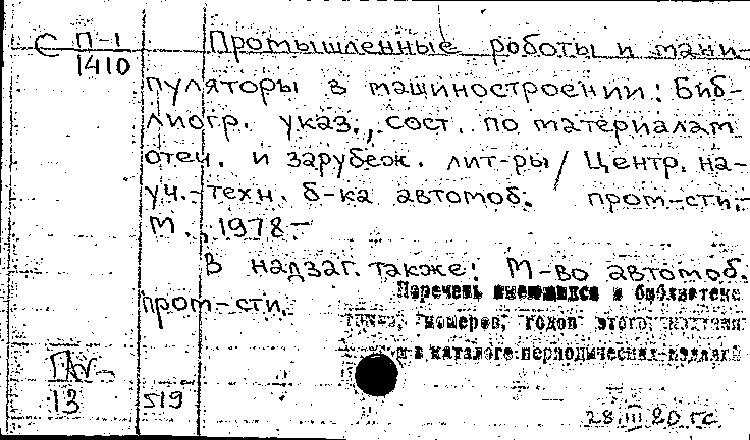 С П-1 Промышленные роботы и мани-
1410
пуляторы в машиностроении: Биб-
лиогр. указ., сост. по материалам
отеч. и зарубеж. лит-ры / Центр. на-
уч.-техн. б-ка автомоб. пром-сти.-
М., 1978.-
В надзаг. также: М-во автомоб.
пром-сти.
Перечень имеющихся в библиотеке
номеров, годов этого издания
в каталоге периодических изданий
13 519
28.III 80 гс